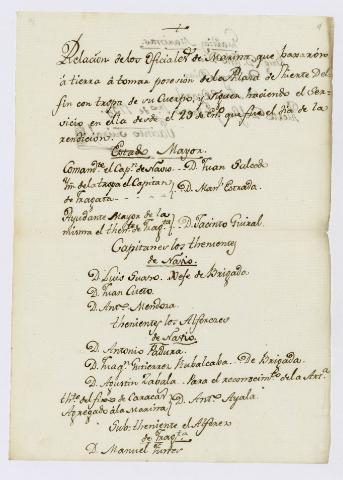 Relacion de los Oficiales de Marina, que pasaron
á tierra á tomar posesion de la Plaza de Fuerte Del-
fin con tropa de su Cuerpo, y siguen haciendo el Ser-
vicio en ella desde el 29 de En.o que fue el dia de la
rendicion.
Estado Mayor.
Comand.te el Cap.n de Navio D. Juan Salcedo
de la tropa el Capitan
de Fragata D. Man.l Estrada.
Ayudante Mayor de la
misma el then.te de Frag.ta D. Jacinto Guiral.
Capitanes los thenientes
de Navio.
D. Luis Xefe de Brigada
D. Juan Cueto.
D. Ant.o Mendoza.
thenientes los Alferezes
de Navio.
D. Antonio Padura.
D. Joaq.n Gutierrez Rubalcaba. De Brigada.
D. Agustin Zabala. Para el reconocim.to de la Art.a
del fixo de Caracas
Agregado á la Marina D. Ant.o Ayala.
Sub-theniente el Alferez
de Frag.ta
D. Manuel